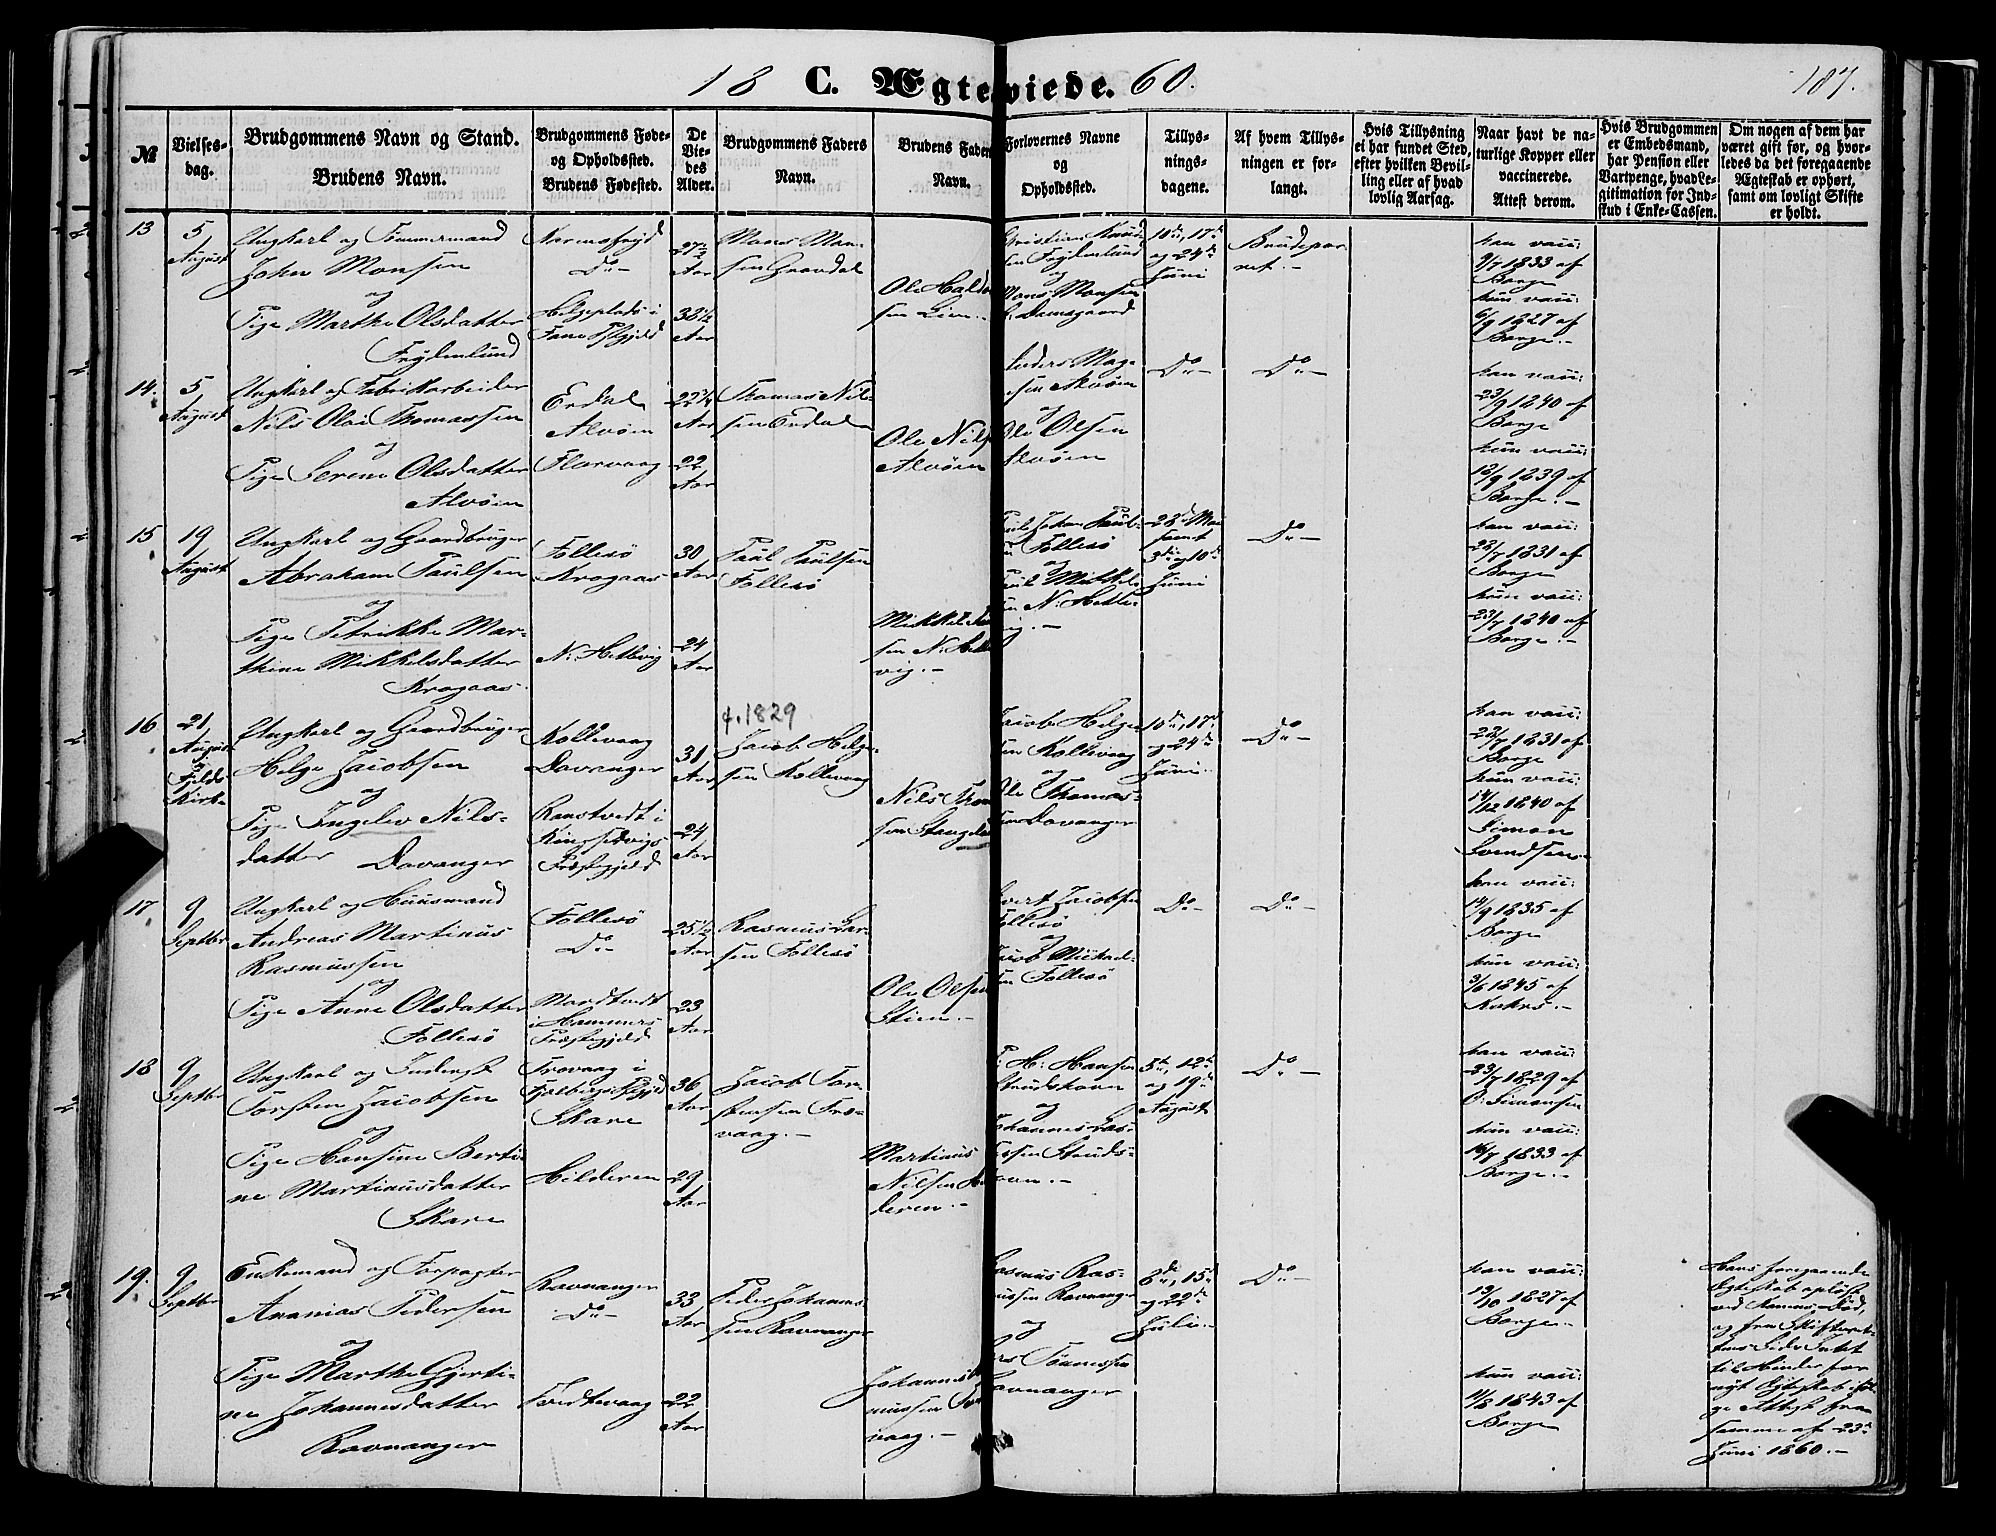 18 C. Ægteviede. 60.
187.
№
Vielses-
dag.
Brudgommens Navn og Stand.
Brudens Navn.
Brudgommens Føde-
og Opholdssted.
Brudens Fødested.
De
Vie-
des
Alder.
Brudgommens Faders
Navn.
Brudens Faders
Navn.
Forlovernes Navne
og
Opholdssted.
Tillys-
nings-
dagene.
Af hvem Tillys-
ningen er for-
langt.
Hvis Tillysning
ei har fundet Sted,
efter hvilken Bevil-
ling eller af hvad
lovlig Aarsag.
Naar havt de na-
turlige Kopper eller
vaccinerede.
Attest derom.
Hvis Brudgommen
er Embedsmand,
har Pension eller
Vartpenge, hvad Le-
gitimation for Ind-
skud i Enke-Cassen.
Om nogen af dem har
været gift før, og hvor-
ledes da det foregaaende
Ægteskab er ophørt,
samt om lovligt Skifte
er holdt.
13
5
August
Ungkarl og Tømmermand
John Monsen
og
Pige Marthe Olsdatter
Frydenlund
Do-
Helgeplads i
Fane Pgjeld
27½
Aar
32½
Aar
Mons Mon-
sen Gravdal
Ole Hald
sen Lien.-
Christian Knud
sen Frydenlund
og
Mons Monsen
Damsgaard
10de, 17de
og 24de
Juni
Brudepar
ret.-
han vacc:
9/7 1833 af
Borge
hun vacc:
6/9 1827 af
Borge.-
14.
5
August
Ungkarl og Fabrikarbeider
Nils Olai Thomassen
og
Pige Serene Olsdatter
Alvøen
Erdal
Alvøen
Florvaag
22¼
Aar
22
Aar
Thomas Nil-
sen Erdal
Ole Nils
Alvøen
Anders Mog-
sen Alvøen
og
Ole Olsen
Alvøen
Do-
Do-
han vacc:
23/9 1840 af
Borge
hun vacc:
12/9 1839 af
Borge.-
15
19
August
Ungkarl og Gaardbruger
Abraham Paulsen
og
Pige Petrikke Mar-
thine Mikkelsdatter
Krogaas
Follesø
Krogaas
N: Hetlvig
30
Aar
24
Aar
Paul Paulsen
Follesø
Mikkel
sen N. Hetl
vig.-
Paul Johan Paul-
sen Follesø
og
Paul Mikkels
sen N: Hetle-
vig.-
28de Mai
samt
3de og 10de
Juni
Do-
han vacc:
22/7 1831 af
Borge
hun vacc:
23/7 1840 af
Borge.-
16
21
August
i
Fjelds
Kirke
Ungkarl og Gaardbruger
Helge Jacobsen
og
Pige Ingelev Nils-
datter Davanger
Kollevaag
Davanger
Ranstvedt i
Kingservigs
Præstegjeld
31
Aar
24
Aar
f. 1829
Jacob Helge-
sen Kollevaag
Nils Thom
Jacob Helge
sen Kollevaag
og
Ole Thomas-
sen Davanger
10de, 17de
og 24de
Juni.
Do-
han vacc:
22/7 1831 af
Borge
hun vacc:
14/12 1840 af
Simon
Svendsen
17.
9
Septbr
Ungkarl og Huusmand
Andreas Martinus
Rasmussen
og
Pige Anne Olsdatter
Follesø
Follesø
Do-
Mundtvedt
i Hammers
Præstegjeld
25½
Aar
23
Aar
Rasmus Lar-
sen Follesø
Ole Olsen
Stien.-
Sivert Jacobsen
Follesø
og
Jacob Michael-
sen Follesø
Do-
Do-
han vacc:
14/9 1835 af
Borge
hun vacc:
3/6 1845 af
Kahrs.-
18
9
Septbr
Ungkarl og Inderst
Torsten Jacobsen
og
Pige Hansine Berti-
ne Martinusdatter
Skare
Trovaag i
Fjelbergs Pgjeld
Skare
Hilderen
36
Aar
29
Aar
Jacob Tor-
stensen Tro-
vaag.-
Martinus
Nilsen Hil
deren.-
P. H: Hansen
Strudshavn
og
Johannes Las-
sesen Struds-
havn.-
5te, 12te
og 19de
August
Do-
han vacc:
23/7 1829 af
O: Simonsen
hun vacc:
16/7 1833 af
Borge.-
19.
9
Septbr
Enkemand og Forpagter
Ananias Pedersen
og
Pige Marthe Gjerti-
ne Johannesdatter
Ravnanger
Ravnanger
Do-
Tvedtevaag
33
Aar
22
Aar
Peder Johannes-
sen Ravnanger
Johannes
mussen Tve
vaag.-
Rasmus Ras-
mussen Ravnanger
og
Lars Tønnessen
Ravnanger
8de, 15de
og 22de
Juli.-
Do-
han vacc:
13/10 1827 af
Borge.-
hun vacc:
4/8 1843 af
Borge
Hans foregaaende
Egteskab opløst
ved Konens Død,
og fra Skifteret-
tens Side Intet
til Hinder for
nyt Egteskab iføl-
ge Attest fra
samme af 23de
Juni 1860.-